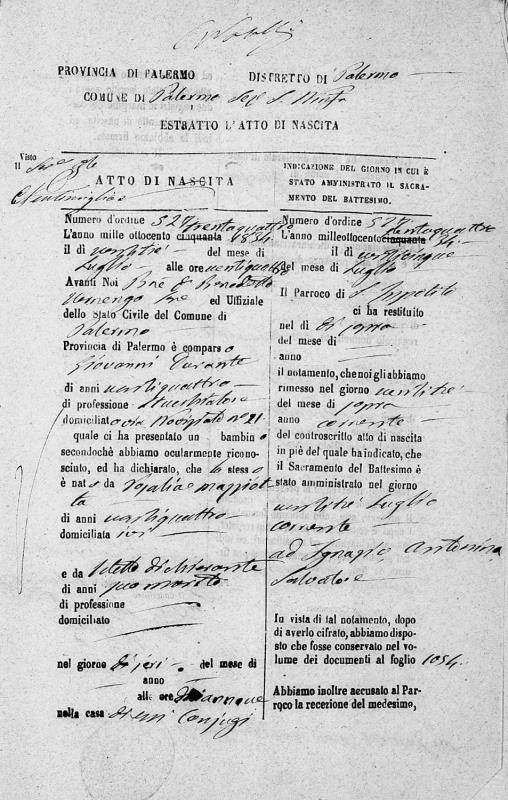 PROVINCIA DI PALERMO DISTRETTO DI Palermo
COMUNE DI Palermo Sez. S. Ninfa
ESTRATTO L'ATTO DI NASCITA
Visto
Il
Ventimiglia
ATTO DI NASCITA
Numero d'ordine 527 trentaquattro
L'anno mille ottocento cinquanta 1834
il dì ventitre del mese di
Luglio alle ore ventiquattro
Avanti Noi Bne D. Benedetto
ed Uffiziale
dello Stato Civile del Comune di
Palermo
Provincia di Palermo è comparso
Giovanni Durante
di anni ventiquattro
di professione
domiciliato via Noviziato no 21
quale ci ha presentato un bambino
secondochè abbiamo ocularmente ricono-
sciuto, ed ha dichiarato, che lo stesso
è nato da Rosalia
di anni ventiquattro
domiciliata ivi
e da detto dichiarante
di anni suo marito
di professione
domiciliato
nel giorno di jeri del mese di
anno
alle ore diciannove
nella casa di essi Conjugi
INDICAZIONE DEL GIORNO IN CUI È
STATO AMMINISTRATO IL SACRA-
MENTO DEL BATTESIMO.
Numero d'ordine 527 trentaquattro
L'anno milleottocento cinquanta 34
il dì venticinque
del mese di Luglio
Il Parroco di S. Ippolito
ci ha restituito
nel dì di sopra
del mese di
anno
il notamento, che noi gli abbiamo
rimesso nel giorno ventitre
del mese di sopra
anno corrente
del controscritto atto di nascita
in piè del quale ha indicato, che
il Sacramento del Battesimo è
stato amministrato nel giorno
ventitre Luglio
corrente
ad Ignazio, Antonino
Salvatore
In vista di tal notamento, dopo
di averlo cifrato, abbiamo dispo-
sto che fosse conservato nel vo-
lume dei documenti al foglio 1054
Abbiamo inoltre accusato al Par-
roco la recezione del medesimo,